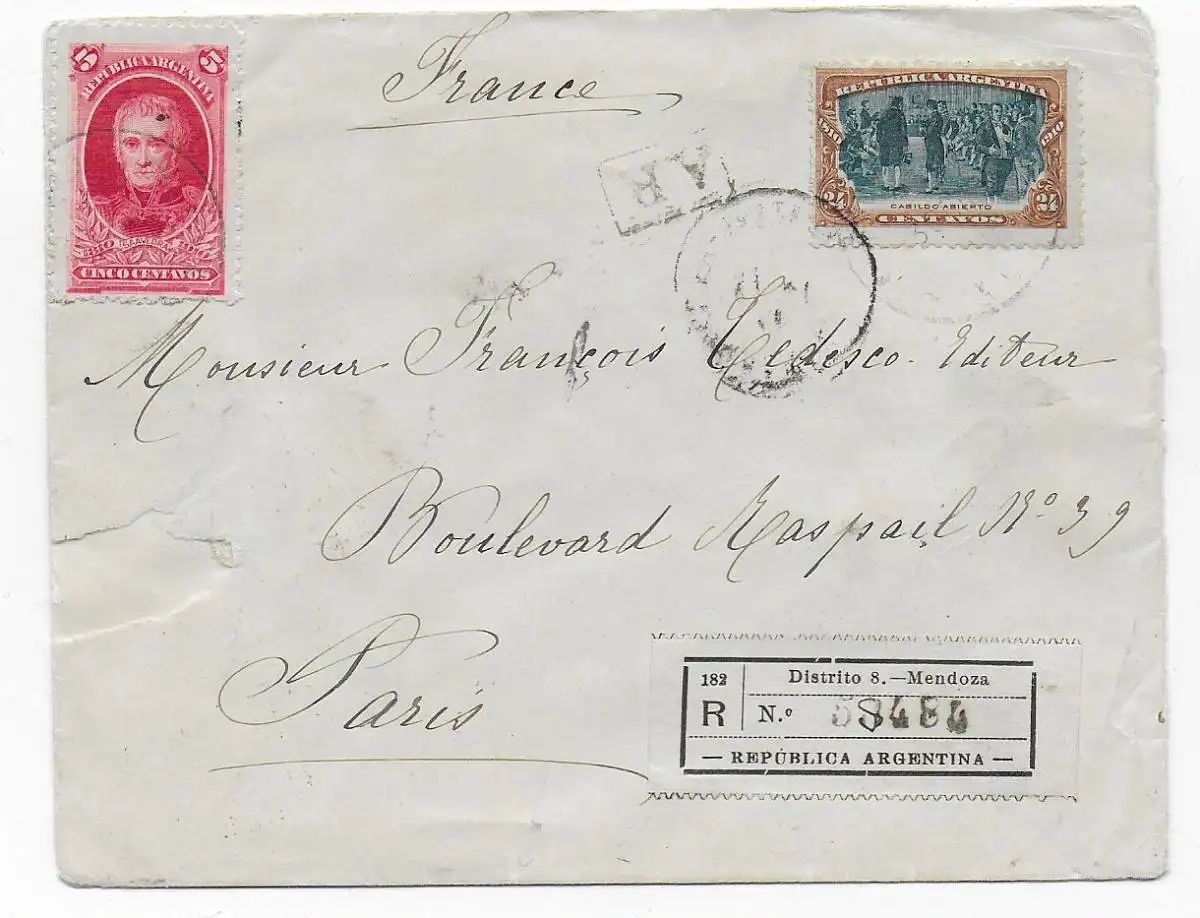 France
5 5
REPÚBLICA ARGENTINA
1810 SAAVEDRA 1910
CINCO CENTAVOS
REPÚBLICA ARGENTINA
1810 1910
CABILDO ABIERTO
24 CENTAVOS 24
A.R.
Monsieur François Tedesco. Editeur
Boulevard Raspail Nº 39
Paris
182 Distrito 8.—Mendoza
R N.º
— REPÚBLICA ARGENTINA —